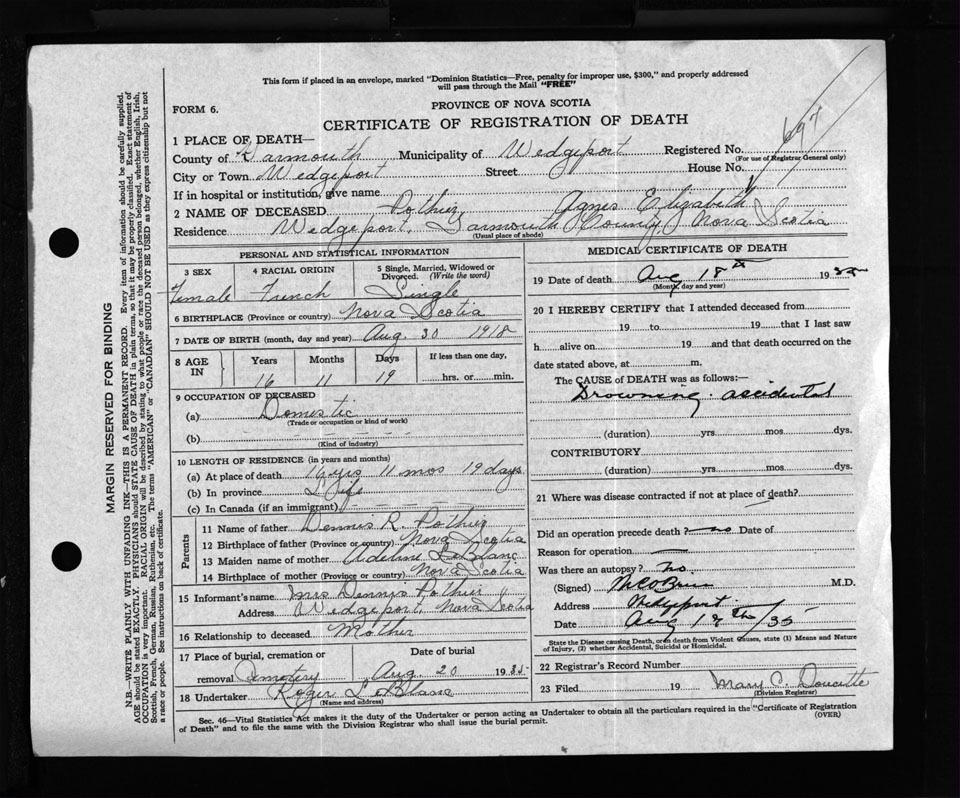 This form if placed in an envelope, marked "Dominion Statistics—Free, penalty for improper use, $300," and properly addressed
will pass through the Mail "FREE"
FORM 6.
PROVINCE OF NOVA SCOTIA
CERTIFICATE OF REGISTRATION OF DEATH
697
1 PLACE OF DEATH—
County of Yarmouth Municipality of Wedgeport Registered No.
(For use of Registrar General only)
City or Town Wedgeport Street House No.
If in hospital or institution, give name
2 NAME OF DECEASED Pothier, Agnes Elizabeth
Residence Wedgeport, Yarmouth County, Nova Scotia
(Usual place of abode)
PERSONAL AND STATISTICAL INFORMATION
3 SEX 4 RACIAL ORIGIN 5 Single, Married, Widowed or Divorced. (Write the word)
Female French Single
6 BIRTHPLACE (Province or country) Nova Scotia
7 DATE OF BIRTH (month, day and year) Aug. 30 1918
8 AGE IN Years Months Days If less than one day,
16 11 19 hrs. or min.
9 OCCUPATION OF DECEASED
(a) Domestic
(Trade or occupation or kind of work)
(b)
(Kind of industry)
10 LENGTH OF RESIDENCE (in years and months)
(a) At place of death 16 yrs 11 mos 19 days
(b) In province Life
(c) In Canada (if an immigrant)
Parents
11 Name of father Dennis R. Pothier
12 Birthplace of father (Province or country) Nova Scotia
13 Maiden name of mother Adeline LeBlanc
14 Birthplace of mother (Province or country) Nova Scotia
15 Informant's name Mrs Dennis Pothier
Address Wedgeport, Nova Scotia
16 Relationship to deceased Mother
17 Place of burial, cremation or removal Cemetery Date of burial Aug. 20 1935
18 Undertaker Roger LeBlanc
(Name and address)
MEDICAL CERTIFICATE OF DEATH
19 Date of death Aug 18th 1935
(Month, day and year)
20 I HEREBY CERTIFY that I attended deceased from
19 to 19 that I last saw
h alive on 19 and that death occurred on the
date stated above, at m.
The CAUSE OF DEATH was as follows:—
Drowning. accidental
(duration) yrs. mos. dys.
CONTRIBUTORY
(duration) yrs. mos. dys.
21 Where was disease contracted if not at place of death?
Did an operation precede death? no Date of
Reason for operation
Was there an autopsy? No.
(Signed) M.D.
Address Wedgeport
Date Aug 18th/35
State the Disease causing Death, or in death from Violent Causes, state (1) Means and Nature
of Injury, (2) whether Accidental, Suicidal or Homicidal.
22 Registrar's Record Number
23 Filed 19 Mary C. Doucette
(Division Registrar)
Sec. 46—Vital Statistics Act makes it the duty of the Undertaker or person acting as Undertaker to obtain all the particulars required in the "Certificate of Registration
of Death" and to file the same with the Division Registrar who shall issue the burial permit. (OVER)
MARGIN RESERVED FOR BINDING
N.B.—WRITE PLAINLY WITH UNFADING INK—THIS IS A PERMANENT RECORD. Every item of information should be carefully supplied.
AGE should be stated EXACTLY. PHYSICIANS should STATE CAUSE OF DEATH in plain terms, so that it may be properly classified. Exact statement of
OCCUPATION is very important. RACIAL ORIGIN will be described by stating to what people or race the deceased person belonged, whether English, Irish,
Scottish, French, German, Russian, Ruthenian, etc. The terms "AMERICAN" or "CANADIAN" SHOULD NOT BE USED as they express citizenship but not
a race or people. See instructions on back of certificate.